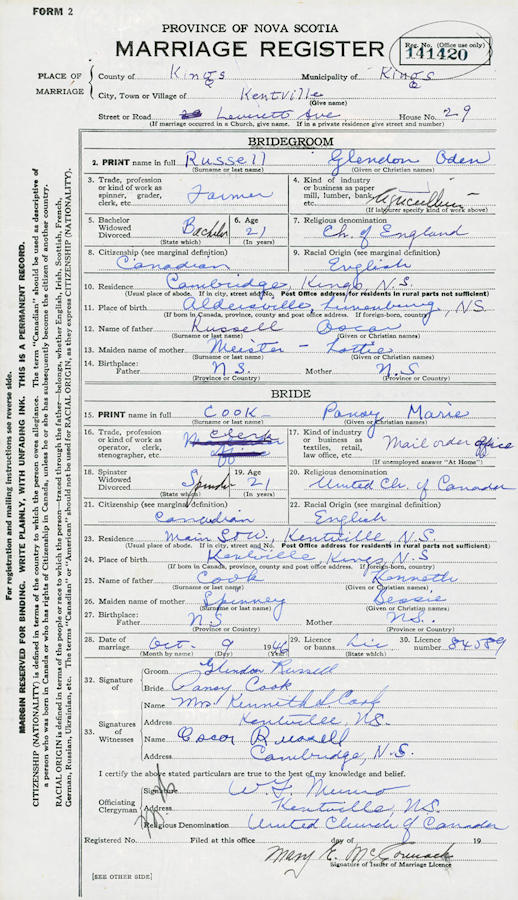 FORM 2
PROVINCE OF NOVA SCOTIA
MARRIAGE REGISTER
Reg. No. (Office use only)
141420
PLACE OF MARRIAGE
County of Kings Municipality of Kings
City, Town or Village of Kentville
(Give name)
Street or Road Leverett Ave House No. 29
(If marriage occurred in a Church, give name. If in a private residence give street and number)
BRIDEGROOM
2. PRINT name in full Russell Glendon Oden
(Surname or last name) (Given or Christian names)
3. Trade, profession or kind of work as spinner, grader, clerk, etc. Farmer
4. Kind of industry or business as paper mill, lumber, bank, etc. Agriculture
(If labourer specify kind of work above)
5. Bachelor Widowed Divorced Bachelor
(State which)
6. Age 21
(In years)
7. Religious denomination Ch. of England
8. Citizenship (see marginal definition) Canadian
9. Racial Origin (see marginal definition) English
10. Residence Cambridge, Kings, N.S.
(Usual place of abode. If in city, street and No. Post Office address for residents in rural parts not sufficient)
11. Place of birth Aldersville, Lunenburg, NS
(If born in Canada, province, county and post office address. If foreign-born, country)
12. Name of father Russell Oscar
(Surname or last name) (Given or Christian names)
13. Maiden name of mother Meister - Lottie
(Surname or last name) (Given or Christian names)
14. Birthplace:
Father N.S. Mother N.S
(Province or Country) (Province or Country)
BRIDE
15. PRINT name in full COOK - Pansy Marie
(Surname or last name) (Given or Christian names)
16. Trade, profession or kind of work as operator, clerk, stenographer, etc. clerk office
17. Kind of industry or business as textiles, retail, law office, etc Mail order office
(If unemployed answer "At Home")
18. Spinster Widowed Divorced Spinster
(State which)
19. Age 21
(In years)
20. Religious denomination United Ch. of Canada
21. Citizenship (see marginal definition) Canadian
22. Racial Origin (see marginal definition) English
23. Residence Main St W., Kentville, N.S.
(Usual place of abode. If in city, street and No. Post Office address for residents in rural parts not sufficient)
24. Place of birth Kentville, Kings, N.S
(If born in Canada, province, county and post office address. If foreign-born, country)
25. Name of father Cook Kenneth
(Surname or last name) (Given or Christian names)
26. Maiden name of mother Spinney Bessie
(Surname or last name) (Given or Christian names)
27. Birthplace:
Father N.S Mother N.S.
(Province or Country) (Province or Country)
28. Date of marriage Oct. 9 1946
(Month by name) (Day) (Year)
29. Licence or banns Lic
(State which)
30. Licence number 84589
32. Signature of
Groom Glendon Russell
Bride Pansy Cook
33. Signatures of Witnesses
Name Mrs. Kenneth S Cook
Address Kentville, NS.
Name Oscar Russell
Address Cambridge, N.S.
I certify the above stated particulars are true to the best of my knowledge and belief.
Officiating Clergyman
Signature W. G. Munro
Address Kentville, NS.
Religious Denomination United Church of Canada
Registered No. Filed at this office day of 19
Mary E. McCormack
Signature of Issuer of Marriage Licence
[SEE OTHER SIDE]
For registration and mailing instructions see reverse side.
MARGIN RESERVED FOR BINDING. WRITE PLAINLY, WITH UNFADING INK. THIS IS A PERMANENT RECORD.
CITIZENSHIP (NATIONALITY) is defined in terms of the country to which the person owes allegiance. The term "Canadian" should be used as descriptive of
a person who was born in Canada or who has rights of Citizenship in Canada, unless he or she has subsequently become the citizen of another country.
RACIAL ORIGIN is defined in terms of the people or race to which the person—traced through the father—belongs, whether English, Irish, Scottish, French,
German, Russian, Ukrainian, etc. The terms "Canadian" or "American" should not be used for RACIAL ORIGIN, as they express CITIZENSHIP (NATIONALITY).